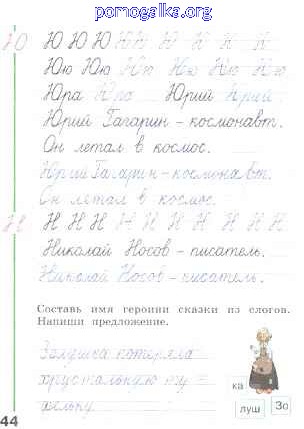 pomogalka.org
Ю Ю Ю Ю Ю Ю Ю Ю Ю Ю
Юю Юю Юю Юю Юю Юю
Юра Юра Юрий Юрий
Юрий Гагарин – космонавт.
Он летал в космос.
Юрий Гагарин – космонавт.
Он летал в космос.
Н Н Н Н Н Н Н Н Н Н
Николай Носов – писатель.
Николай Носов – писатель.
Составь имя героини сказки из слогов.
Напиши предложение.
Золушка потеряла
хрустальную ту
фельку
ка
луш Зо
44